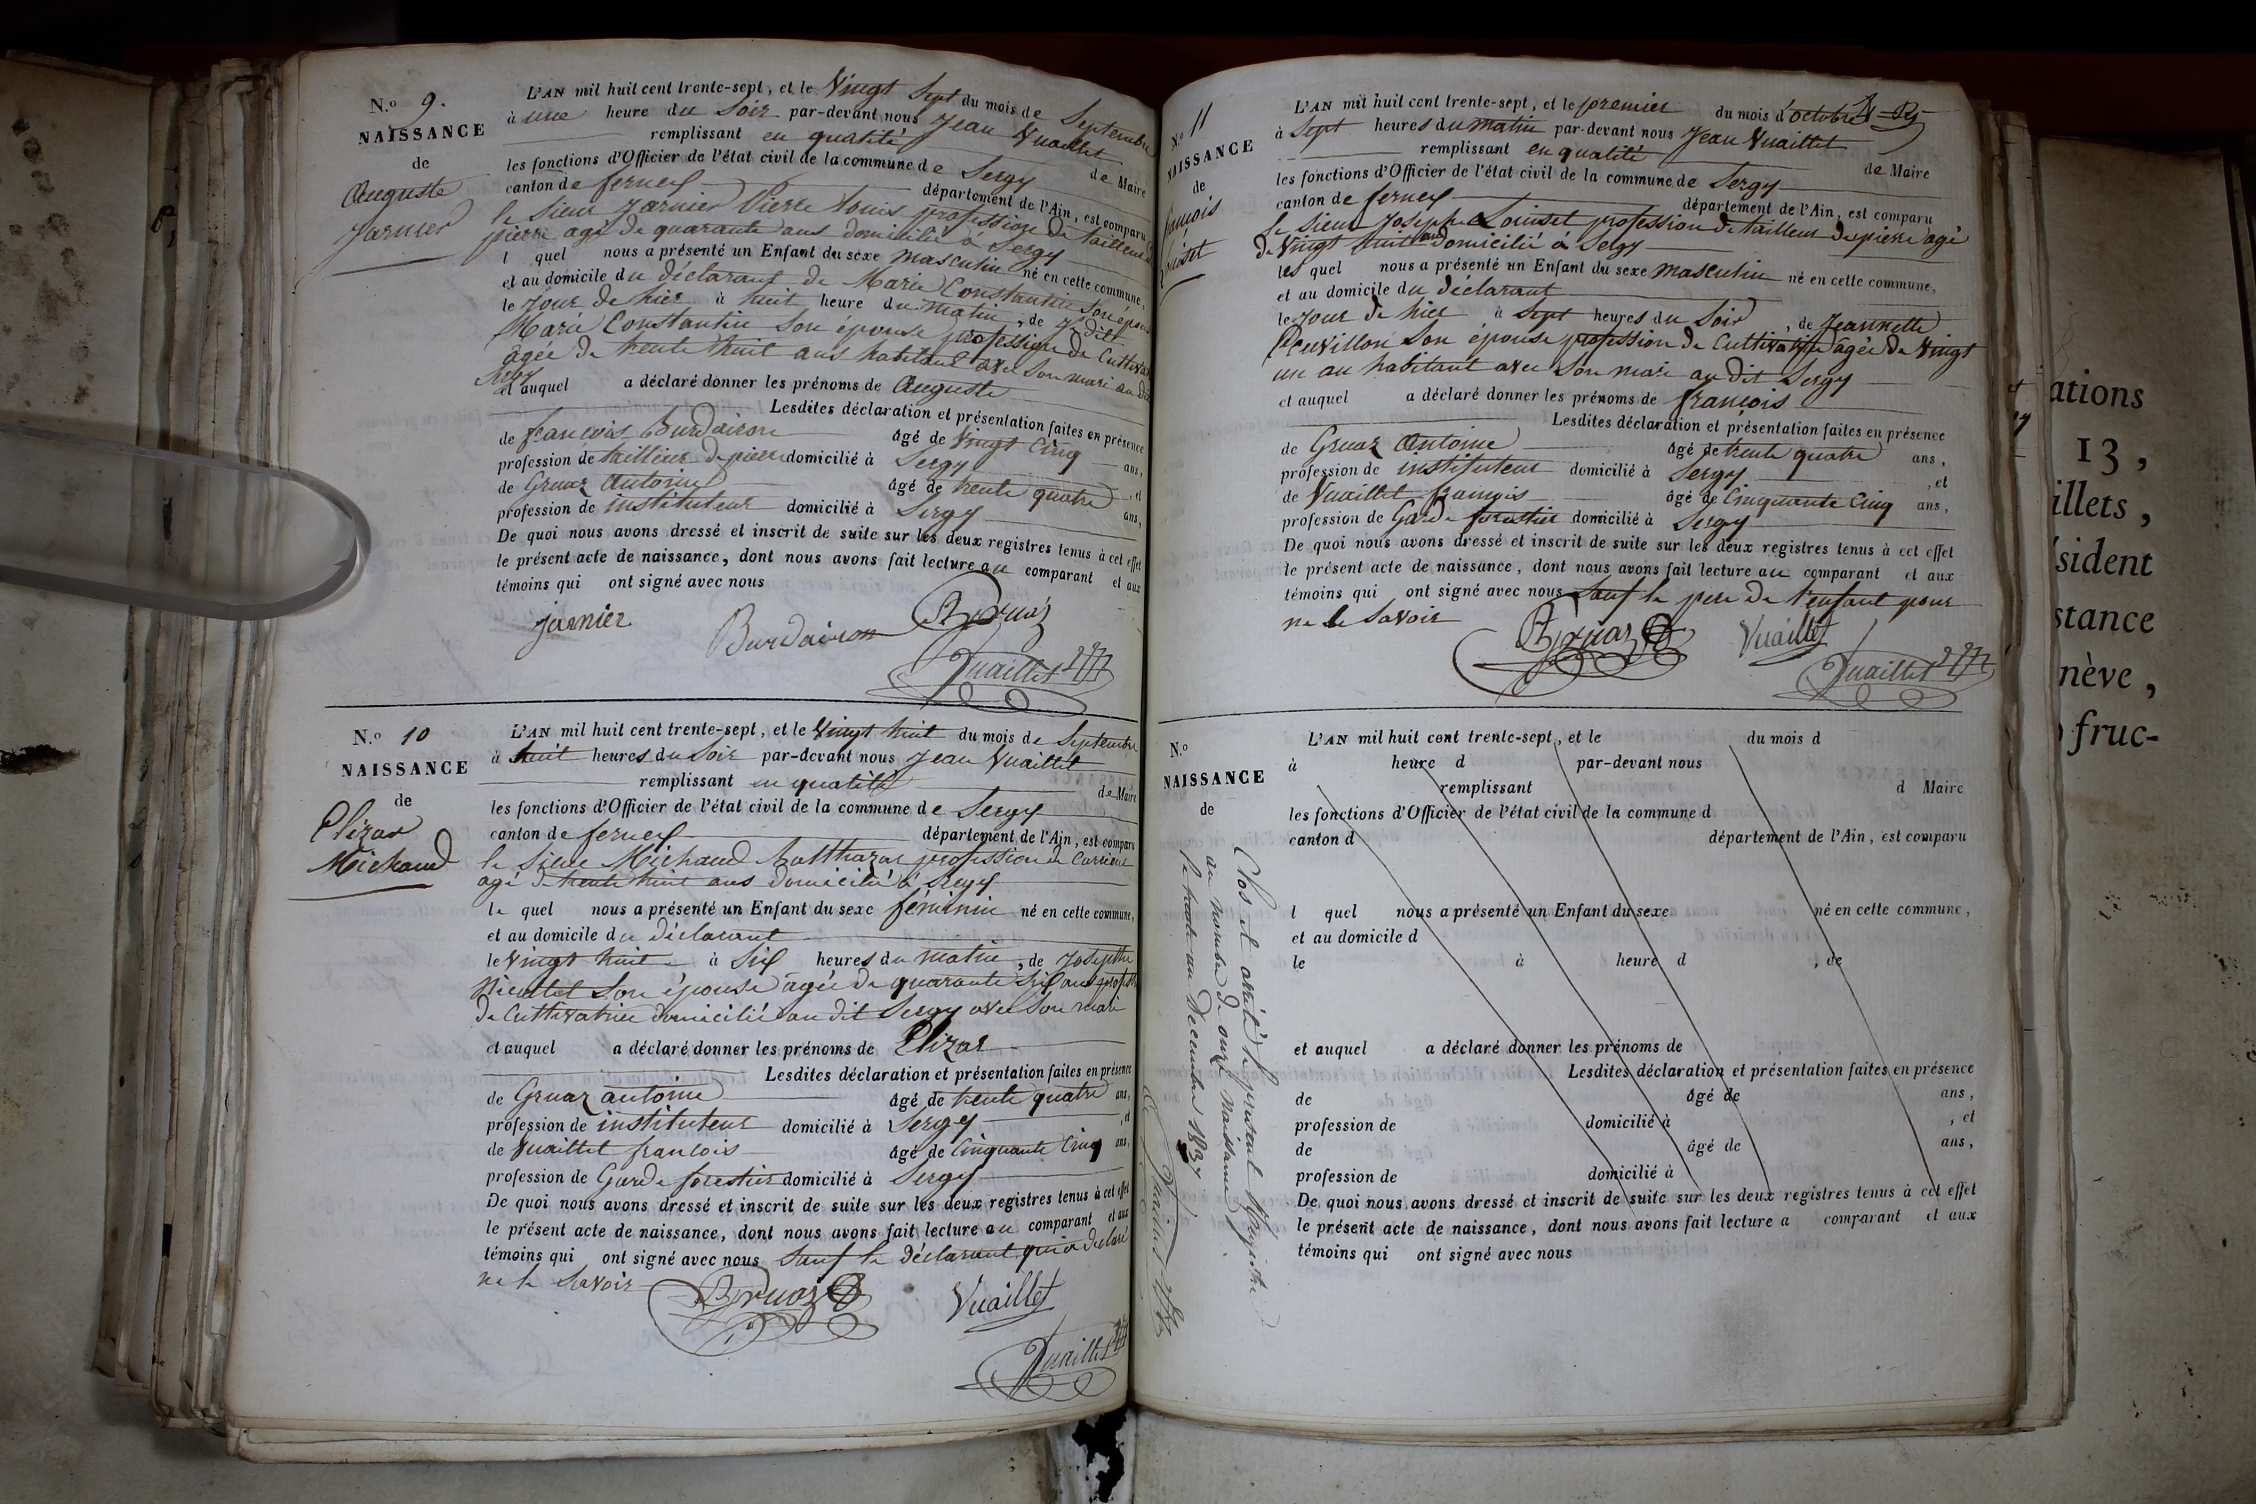 N.o 9.
NAISSANCE
de
Auguste
Jarnier
L'AN mil huit cent trente-sept, et le Vingt Sept du mois de Septembre
à une heure du Soir par-devant nous Jean Vuaillet
remplissant en qualité de Maire
les fonctions d'Officier de l'état civil de la commune de Sergy
canton de ferney département de l'Ain, est comparu
le Sieur Jarnier Pierre Louis profession de tailleur de
pierre agé de quarante ans domicilié à Sergy
l quel nous a présenté un Enfant du sexe masculin né en cette commune,
et au domicile du déclarant de Marie Constantin Son épouse
le Jour de hier à huit heure du matin, de la dite
Marie Constantin Son épouse profession de Cultivatrice
âgée de trente huit ans habitant avec Son mari au dit
Sergy
et auquel a déclaré donner les prénoms de Auguste
Lesdites déclaration et présentation faites en présence
de françois Burdairon âgé de Vingt Cinq ans,
profession de tailleur de pierre domicilié à Sergy , et
de Gruaz Antoine âgé de trente quatre ans,
profession de instituteur domicilié à Sergy
De quoi nous avons dressé et inscrit de suite sur les deux registres tenus à cet effet
le présent acte de naissance, dont nous avons fait lecture au comparant et aux
témoins qui ont signé avec nous
jarnier Burdairon Gruaz
Vuaillet
N.o 10
NAISSANCE
de
Elizar
Michaud
L'AN mil huit cent trente-sept, et le Vingt huit du mois de Septembre
à huit heures du Soir par-devant nous Jean Vuaillet
remplissant en qualité de Maire
les fonctions d'Officier de l'état civil de la commune de Sergy
canton de ferney département de l'Ain, est comparu
le Sieur Michaud Balthazar profession de Carrieur
agé de trente huit ans domicilié à Sergy
le quel nous a présenté un Enfant du sexe féminin né en cette commune,
et au domicile du déclarant
le Vingt huit à Six heures du matin, de Josephte
Nicollet Son épouse âgée de quarante Six ans profession
de Cultivatrice domicilié au dit Sergy avec Son mari
et auquel a déclaré donner les prénoms de Elizar
Lesdites déclaration et présentation faites en présence
de Gruaz antoine âgé de trente quatre ans,
profession de instituteur domicilié à Sergy , et
de Vuaillet francois âgé de Cinquante Cinq ans,
profession de Garde forestier domicilié à Sergy
De quoi nous avons dressé et inscrit de suite sur les deux registres tenus à cet effet
le présent acte de naissance, dont nous avons fait lecture au comparant et aux
témoins qui ont signé avec nous Sauf le déclarant qui a déclaré
ne le Savoir
Gruaz Vuaillet
Vuaillet
N.o 11
NAISSANCE
de
françois
L'AN mil huit cent trente-sept, et le premier du mois d'octobre
à Sept heures du matin par-devant nous Jean Vuaillet
remplissant en qualité de Maire
les fonctions d'Officier de l'état civil de la commune de Sergy
canton de ferney département de l'Ain, est comparu
le Sieur Joseph Louiset profession de tailleur de pierre agé
de Vingt huit ans domicilié à Sergy
le quel nous a présenté un Enfant du sexe masculin né en cette commune,
et au domicile du déclarant
le Jour de hier à Sept heures du Soir, de Jeannette
Son épouse profession de Cultivatrice âgée de Vingt
un an habitant avec Son mari au dit Sergy
et auquel a déclaré donner les prénoms de françois
Lesdites déclaration et présentation faites en présence
de Gruaz Antoine âgé de trente quatre ans,
profession de instituteur domicilié à Sergy , et
de Vuaillet françois âgé de Cinquante Cinq ans,
profession de Garde forestier domicilié à Sergy
De quoi nous avons dressé et inscrit de suite sur les deux registres tenus à cet effet
le présent acte de naissance, dont nous avons fait lecture au comparant et aux
témoins qui ont signé avec nous Sauf le pere de l'enfant pour
ne le Savoir
Gruaz Vuaillet
Vuaillet
N.o
NAISSANCE
de
L'AN mil huit cent trente-sept, et le du mois d
à heure d par-devant nous
remplissant d Maire
les fonctions d'Officier de l'état civil de la commune d
canton d département de l'Ain, est comparu
l quel nous a présenté un Enfant du sexe né en cette commune,
et au domicile d
le à heure d , de
et auquel a déclaré donner les prénoms de
Lesdites déclaration et présentation faites en présence
de âgé de ans,
profession de domicilié à , et
de âgé de ans,
profession de domicilié à
De quoi nous avons dressé et inscrit de suite sur les deux registres tenus à cet effet
le présent acte de naissance, dont nous avons fait lecture a comparant et aux
témoins qui ont signé avec nous
Clos et arrêté le présent Registre
au nombre de onze naissance
le trente un Decembre 1837
Vuaillet
ations
13,
illets,
sident
stance
nève,
fruc-